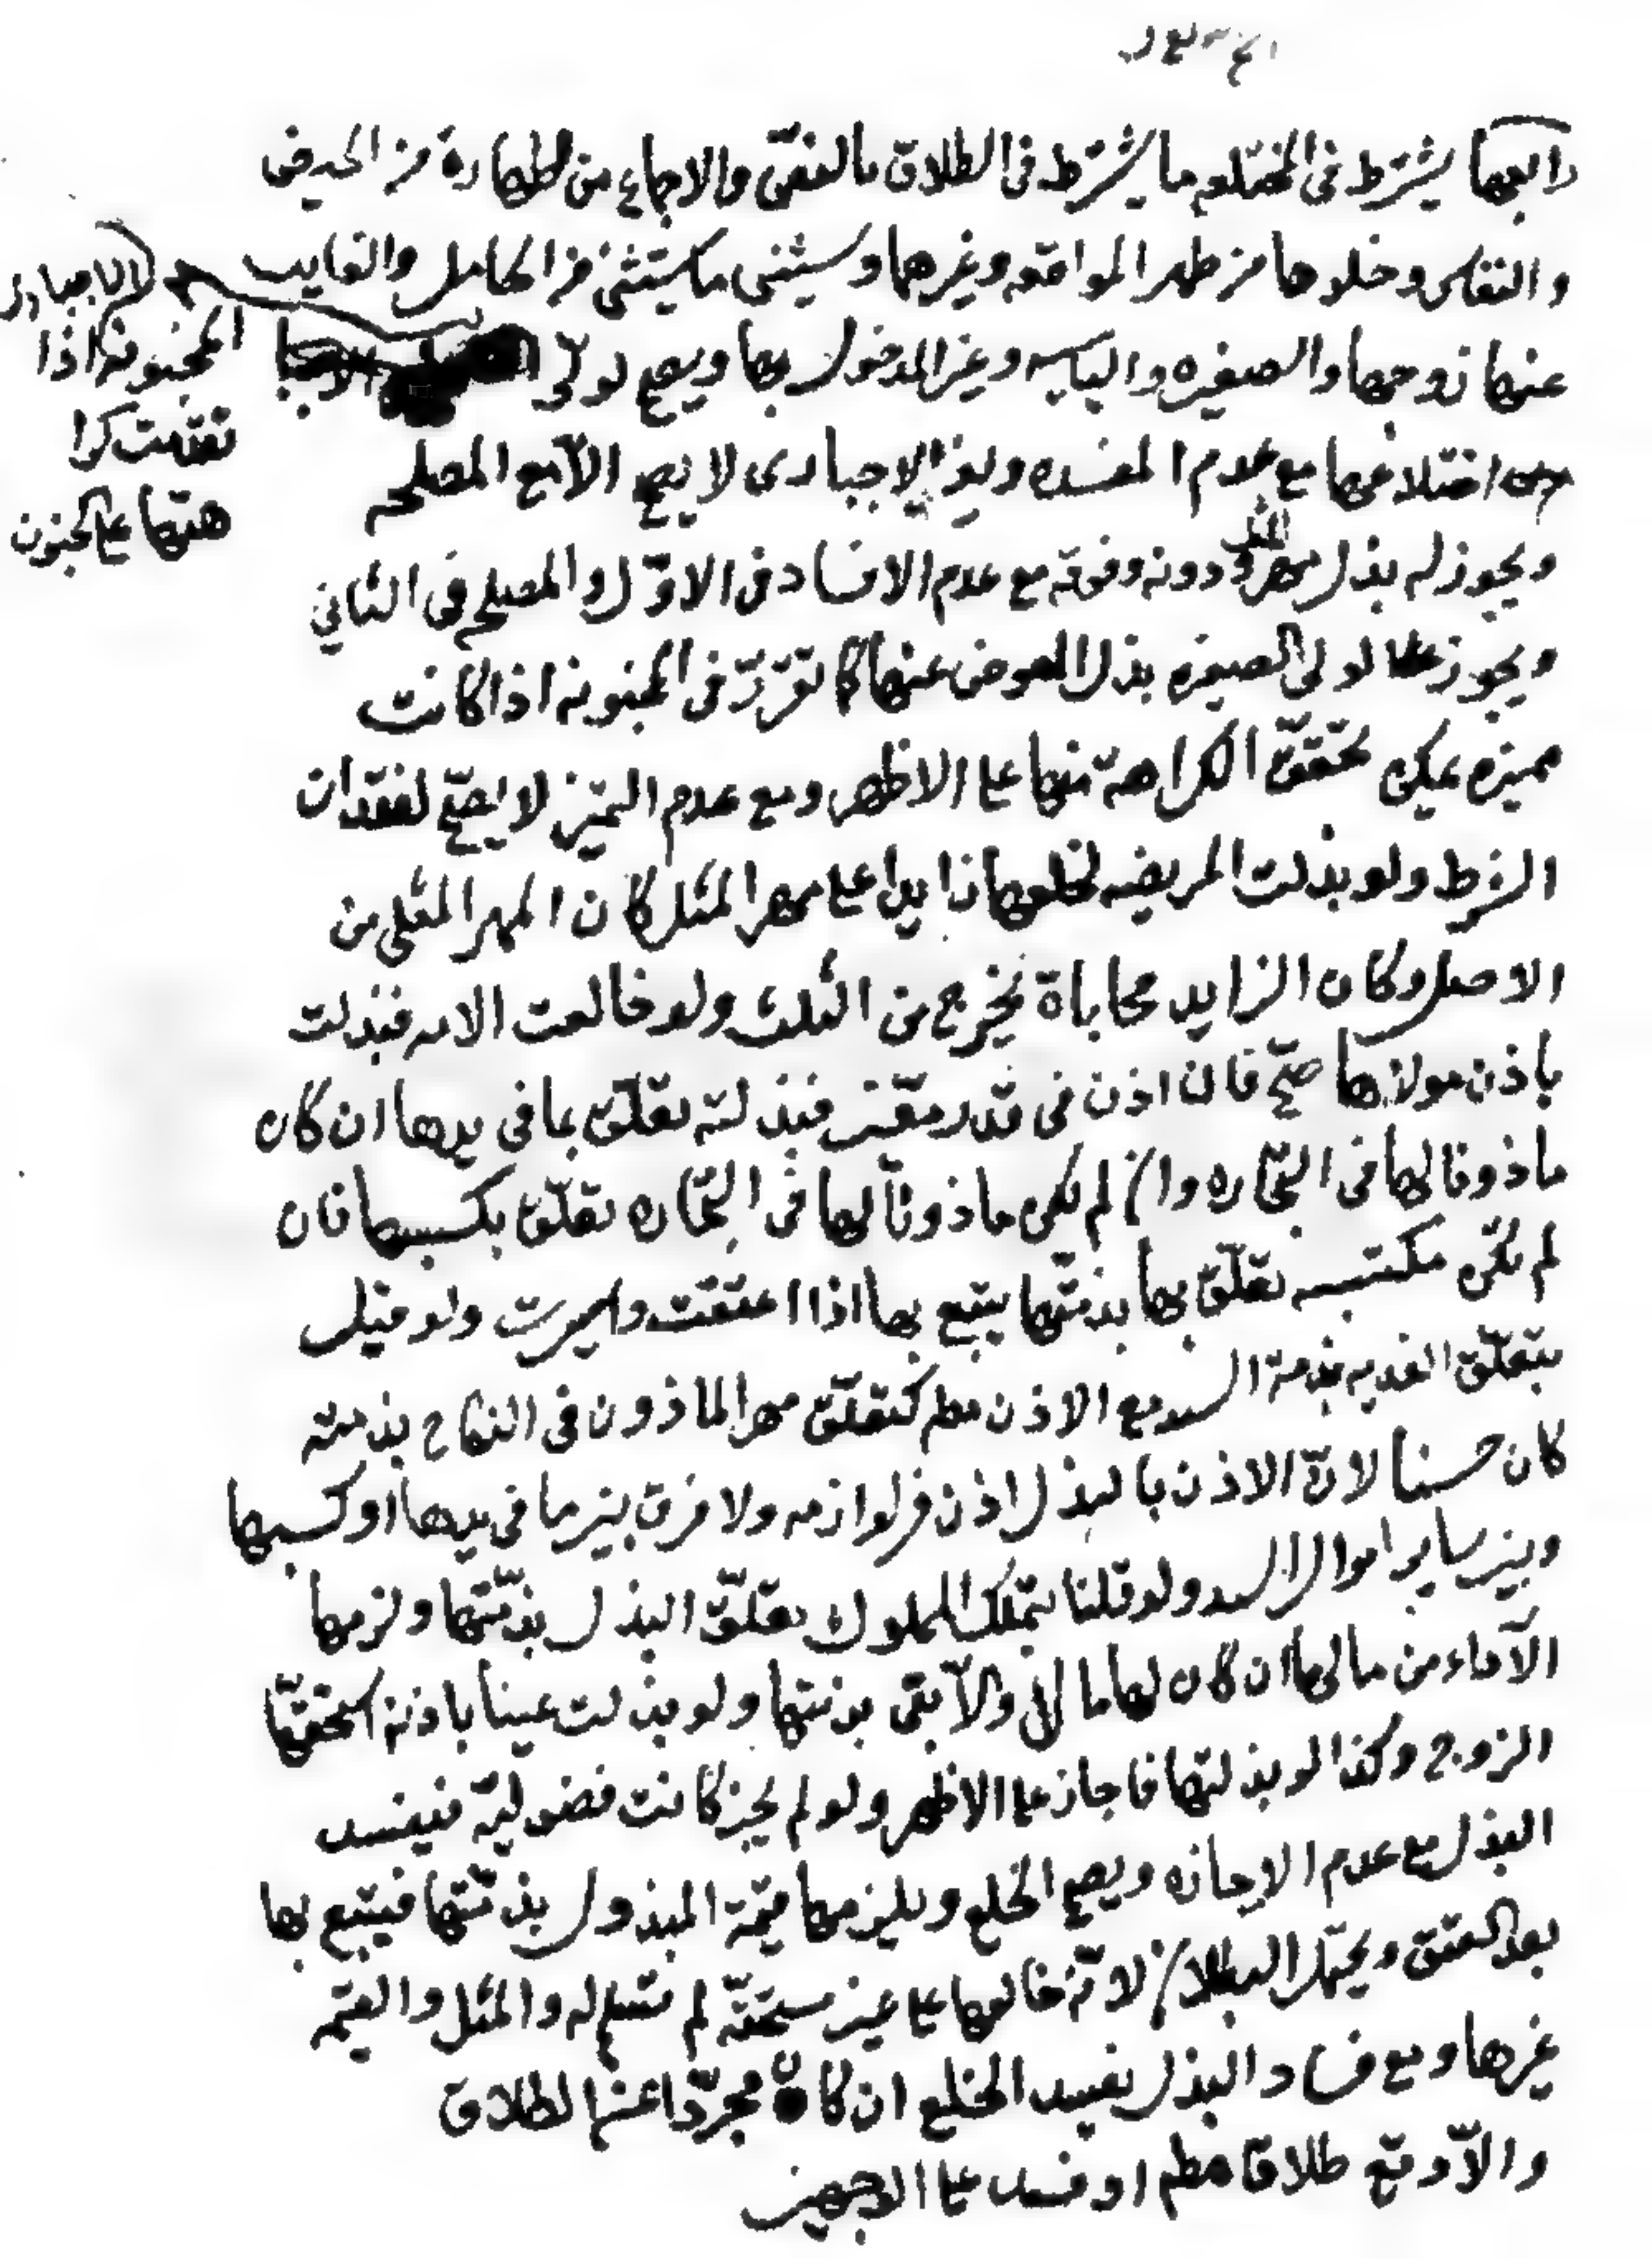 رابعها يشترط في المختلعه ما يشترط في الطلاق بالنص والاجماع من الطهارة من الحيض
والنفاس وخلوها من طهر المواقعه وغيرهما وسيثنى ما يستثنى من الحامل والغايب
عنها زوجها والصغيره واليايسه وغير المدخول بها ويصح لولي
الاجباري
المجنونة اذا
تقدمت كرا
هتها على الجنون
اختلاعها مع عدم المفسده وغير الاجباري لا يصح الا مع المصلحه
ويجوز له بذل مهر المثل و دونه وفوقه مع عدم الافساد في الاول والمصلحه في الثاني
ويجوز لولي الصغيره بذل العوض عنها كما تقرر في المجنونه اذا كانت
مميزه يمكن تحقق الكراهة منها على الاظهر ومع عدم التميز لا يصح لفقدان
الشرط ولو بذلت المريضه لخلعها زايدا على مهر المثل كان المهر المثلي من
الاصل وكان الزايد محاباة يخرج من الثلث ولو خالعت الامه فبذلت
باذن مولاها صح فان اذن في قدر معين فبذلته تعلق بما في يدها ان كان
ماذونا لها في التجاره وان لم يكن ماذونا لها في التجاره تعلق بكسبها فان
لم تكن مكتسبه تعلق بها بذمتها يتبع بها اذا اعتقت وايسرت ولو قيل
بتعلق الفديه بذمة السيد مع الاذن مطم كتعلق مهر الماذون في النكاح بذمته
كان حسنا لان الاذن بالبذل اذن في لوازمه ولا فرق بين ما في يدها او كسبها
وبين ساير اموال السيد ولو قلنا بتملك المملوك تعلق البذل بذمتها ولزمها
الآداء من مالها ان كان لها مال والا بقى بذمتها ولو بذلت عينا باذنه استحقها
الزوج وكذا لو بذلتها فاجاز على الاظهر ولو لم يجز كانت فضولية فيفسد
البذل مع عدم الاجازه ويصح الخلع ويلزمها قيمة المبذول بذمتها فيتبع بها
بعد العتق ويحتمل البطلان لانه خالعها على عين مستحقه لم تسلم له والمثل والقيمه
غيرها ومع فساد البذل يفسد الخلع ان كان مجردا عن الطلاق
والا وقع طلاقا مطم او فسد على الوجهين